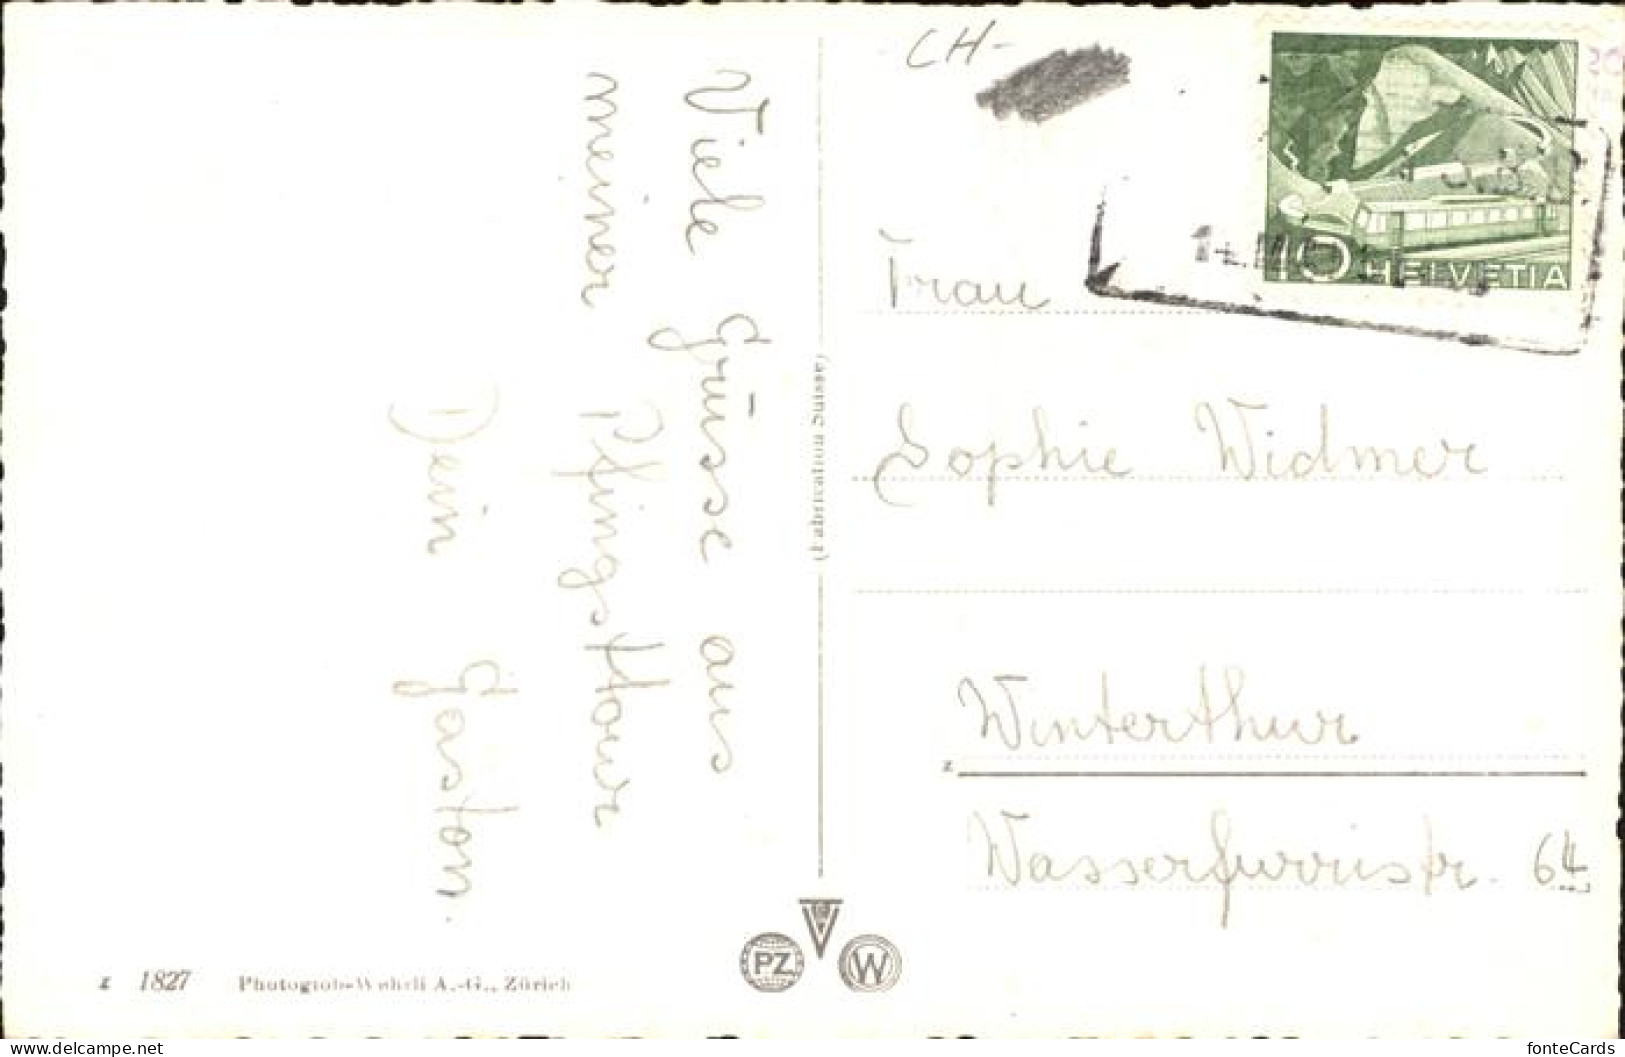 CH-
HELVETIA
Viele Grüsse aus
meiner Pfingsttour
Dein Gaston.
(Fabrication Suisse)
Frau
Sophie Widmer
Winterthur
z
Wasserfurristr. 64
PZ
W
z 1827 Photoglob-Wehrli A.-G., Zürich
www.delcampe.net
fonteCards